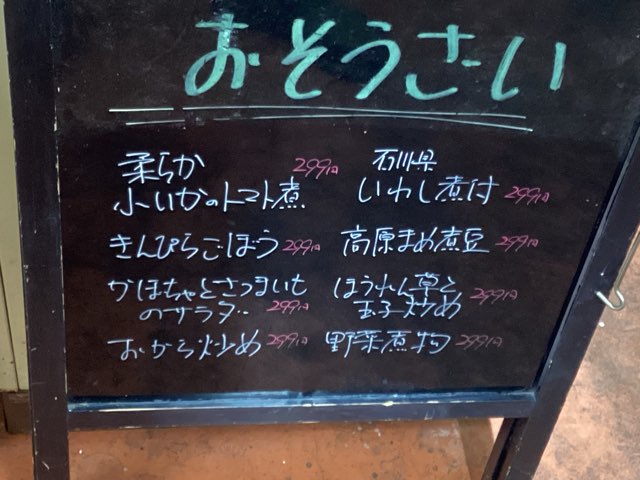 おそうざい
柔らか
小いかのトマト煮 299円
きんぴらごぼう 299円
かぼちゃとさつまいも
のサラダ 299円
おから炒め 299円
石川県
いわし煮付 299円
高原まめ煮豆 299円
ほうれん草と
玉子炒め 299円
野菜煮物 299円